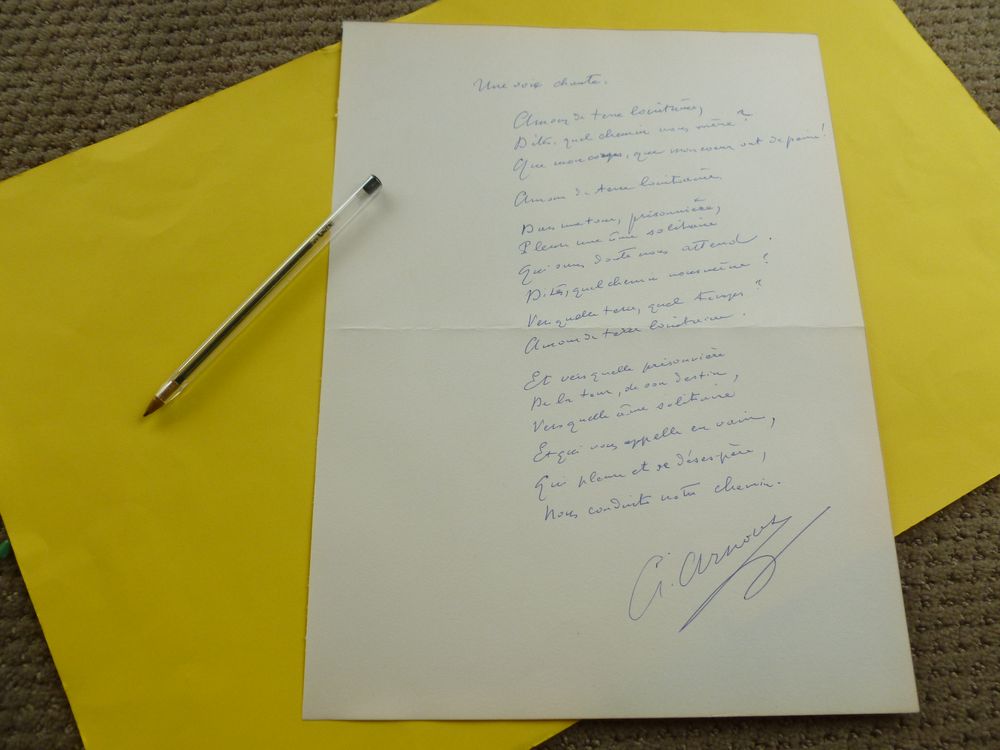 Une voix chante.
Amour de terre lointaine,
Dites, quel chemin nous mène ?
Que mon corps, que mon cœur ont de peine !
Amour de terre lointaine,
Dans ma tour, prisonnière,
Pleure une âme solitaire
Qui sans doute nous attend.
Dites, quel chemin nous mène ?
Vers quelle terre, quel rivage ?
Amour de terre lointaine.
Et vers quelle prisonnière
De la tour, de son destin,
Vers quelle âme solitaire
Et qui vous appelle en vain,
Qui pleure et se désespère,
Nous conduit notre chemin.
G. Arnoux